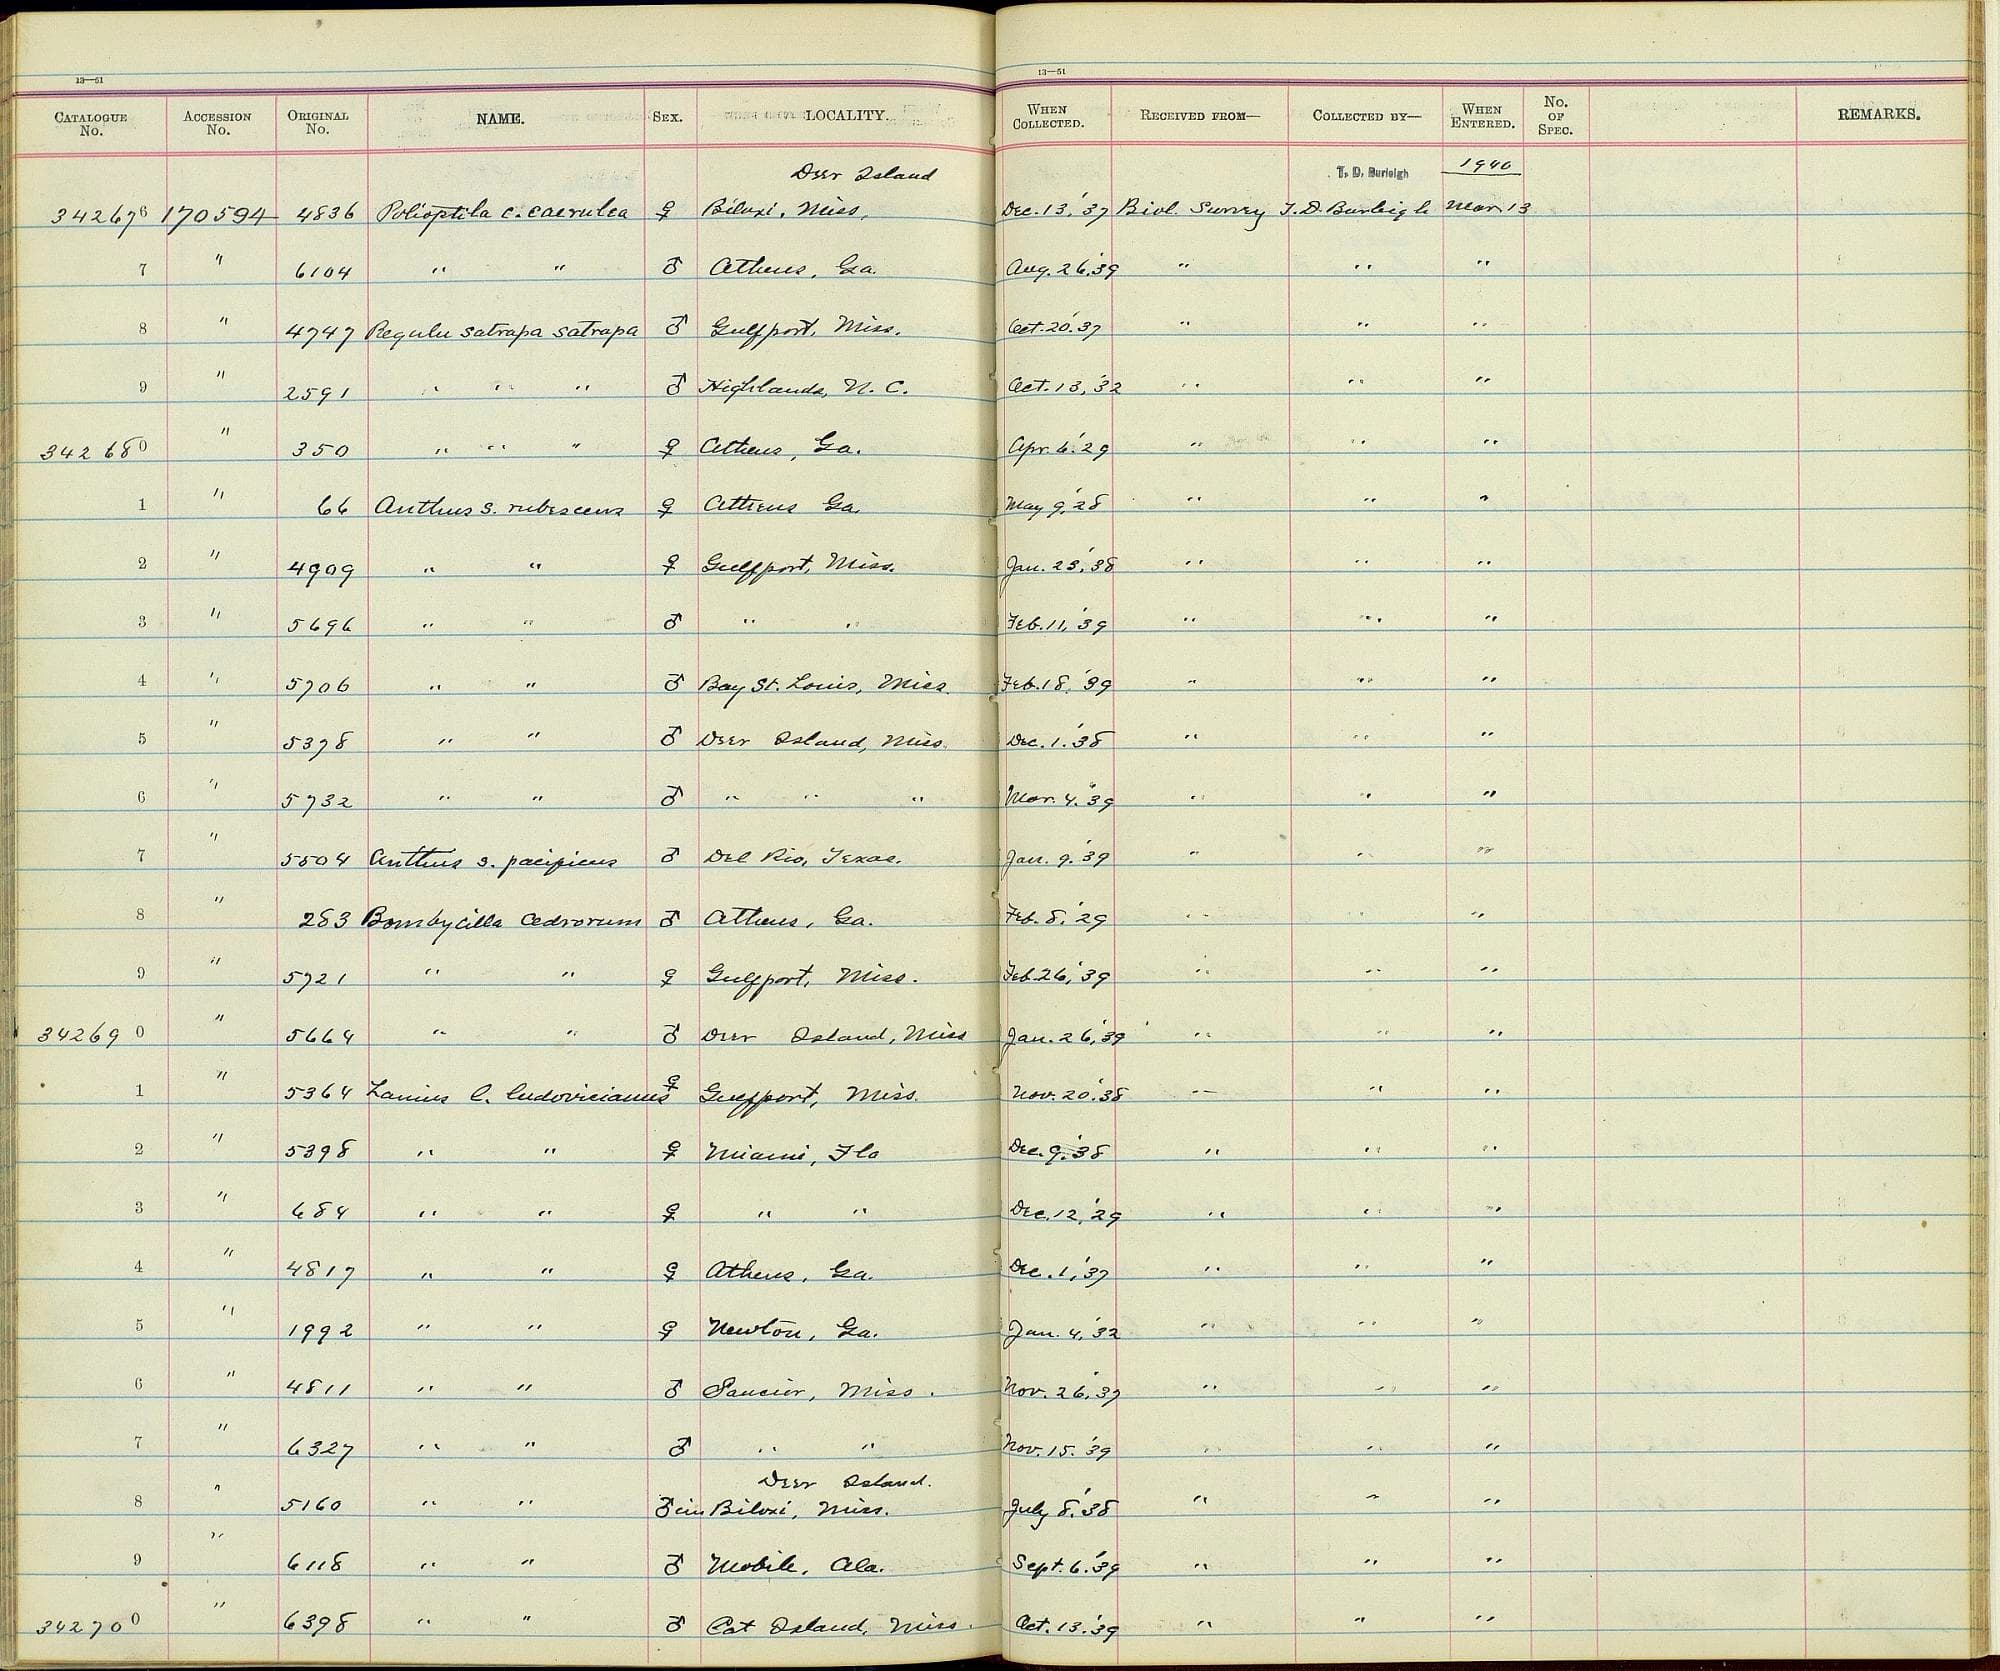 13—51
13—51
CATALOGUE No. ACCESSION No. ORIGINAL No. NAME. SEX. LOCALITY. WHEN COLLECTED. RECEIVED FROM— COLLECTED BY— WHEN ENTERED. No. OF SPEC. REMARKS.
Deer Island T. D. Burleigh 1940
342676 170594 4836 Polioptila c. caerulea ♀ Biloxi, Miss. Dec. 13, '37 Biol. Survey T. D. Burleigh Mar 13
7 " 6104 " " ♂ Athens, Ga. Aug. 26, '39 " " "
8 " 4747 Regulu satrapa satrapa ♂ Gulfport, Miss. Oct. 20, '37 " " "
9 " 2591 " " " ♂ Highlands, N. C. Oct. 13, '32 " " "
342680 " 350 " " " ♀ Athens, Ga. Apr. 6, '29 " " "
1 " 66 Anthus s. rubescens ♀ Athens Ga. May 9, '28 " " "
2 " 4909 " " ♀ Gulfport, Miss. Jan. 23, '38 " " "
3 " 5696 " " ♂ " " Feb. 11, '39 " " "
4 " 5706 " " ♂ Bay St. Louis, Miss. Feb. 18, '39 " " "
5 " 5378 " " ♂ Deer Island, Miss. Dec. 1, '38 " " "
6 " 5732 " " ♂ " " " Mar. 4, '39 " " "
7 " 5504 Anthus s. pacificus ♂ Del Rio, Texas. Jan. 9, '39 " " "
8 " 283 Bombycilla cedrorum ♂ Athens, Ga. Feb. 8, '29 " " "
9 " 5721 " " ♀ Gulfport, Miss. Feb. 26, '39 " " "
342690 " 5664 " " ♂ Deer Island, Miss Jan. 26, '39 " " "
1 " 5364 Lanius l. ludovicianus ♀ Gulfport, Miss. Nov. 20, '38 " " "
2 " 5398 " " ♀ Miami, Fla Dec. 9, '38 " " "
3 " 684 " " ♀ " " Dec. 12, '29 " " "
4 " 4817 " " ♀ Athens, Ga. Dec. 1, '37 " " "
5 " 1992 " " ♀ Newton, Ga. Jan. 4, '32 " " "
6 " 4811 " " ♂ Saucier, Miss. Nov. 26, '37 " " "
7 " 6327 " " ♂ " " Nov. 15, '39 " " "
Deer Island.
8 " 5160 " " ♂ im Biloxi, Miss. July 8, '38 " " "
9 " 6118 " " ♂ Mobile, Ala. Sept. 6, '39 " " "
342700 " 6398 " " ♂ Cat Island, Miss. Oct. 13, '39 " " "